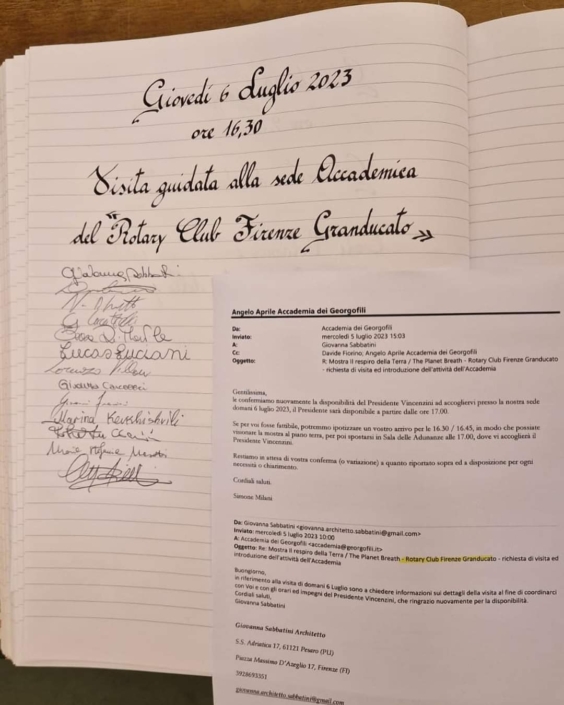 Giovedì 6 Luglio 2023
ore 16,30
Visita guidata alla sede Accademica
del "Rotary Club Firenze Granducato"
Giovanna Sabbatini
Lucas Luciani
Marina Kevkhishvili
Angelo Aprile Accademia dei Georgofili
Da: Accademia dei Georgofili
Inviato: mercoledì 5 luglio 2023 15:03
A: Giovanna Sabbatini
Cc: Davide Fiorino; Angelo Aprile Accademia dei Georgofili
Oggetto: R: Mostra Il respiro della Terra / The Planet Breath - Rotary Club Firenze Granducato
- richiesta di visita ed introduzione dell'attività dell'Accademia
Gentilissima,
le confermiamo nuovamente la disponibilità del Presidente Vincenzini ad accogliervi presso la nostra sede
domani 6 luglio 2023, il Presidente sarà disponibile a partire dalle ore 17.00.
Se per voi fosse fattibile, potremmo ipotizzare un vostro arrivo per le 16.30 / 16.45, in modo che possiate
visionare la mostra al piano terra, per poi spostarvi in Sala delle Adunanze alle 17.00, dove vi accoglierà il
Presidente Vincenzini.
Restiamo in attesa di vostra conferma (o variazione) a quanto riportato sopra ed a disposizione per ogni
necessità o chiarimento.
Cordiali saluti,
Simone Milani
Da: Giovanna Sabbatini <giovanna.architetto.sabbatini@gmail.com>
Inviato: mercoledì 5 luglio 2023 10:00
A: Accademia dei Georgofili <accademia@georgofili.it>
Oggetto: Re: Mostra Il respiro della Terra / The Planet Breath - Rotary Club Firenze Granducato - richiesta di visita ed
introduzione dell'attività dell'Accademia
Buongiorno,
in riferimento alla visita di domani 6 Luglio sono a chiedere informazioni sui dettagli della visita al fine di coordinarci
con Voi e con gli orari ed impegni del Presidente Vincenzini, che ringrazio nuovamente per la disponibilità.
Cordiali saluti,
Giovanna Sabbatini
Giovanna Sabbatini Architetto
S.S. Adriatica 17, 61121 Pesaro (PU)
Piazza Massimo D'Azeglio 17, Firenze (FI)
3928693351
giovanna.architetto.sabbatini@gmail.com